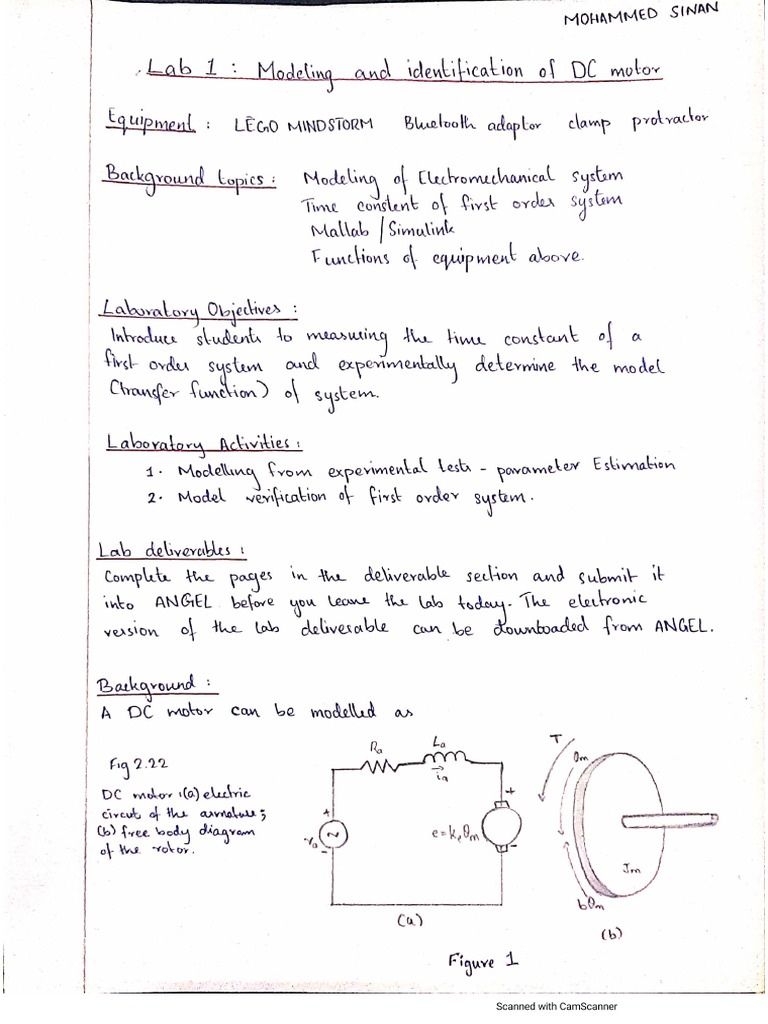 MOHAMMED SINAN
Lab 1 : Modeling and identification of DC motor
Equipment : LEGO MINDSTORM Bluetooth adaptor clamp protractor
Background topics : Modeling of Electromechanical system
Time constent of first order system
Matlab / Simulink
Functions of equipment above.
Laboratory Objectives :
Introduce students to measuring the time constant of a
first order system and experimentally determine the model
(transfer function) of system.
Laboratory Activities :
1. Modelling from experimental tests - parameter Estimation
2. Model verification of first order system.
Lab deliverables :
Complete the pages in the deliverable section and submit it
into ANGEL before you leave the lab today. The electronic
version of the lab deliverable can be downloaded from ANGEL.
Background :
A DC motor can be modelled as
Fig 2.22
DC motor : (a) electric
circuit of the armature;
(b) free body diagram
of the rotor.
Ra
La
ia
+
va
-
+
e = ke θm
-
(a)
T
θm
Jm
bθm
(b)
Figure 1
Scanned with CamScanner